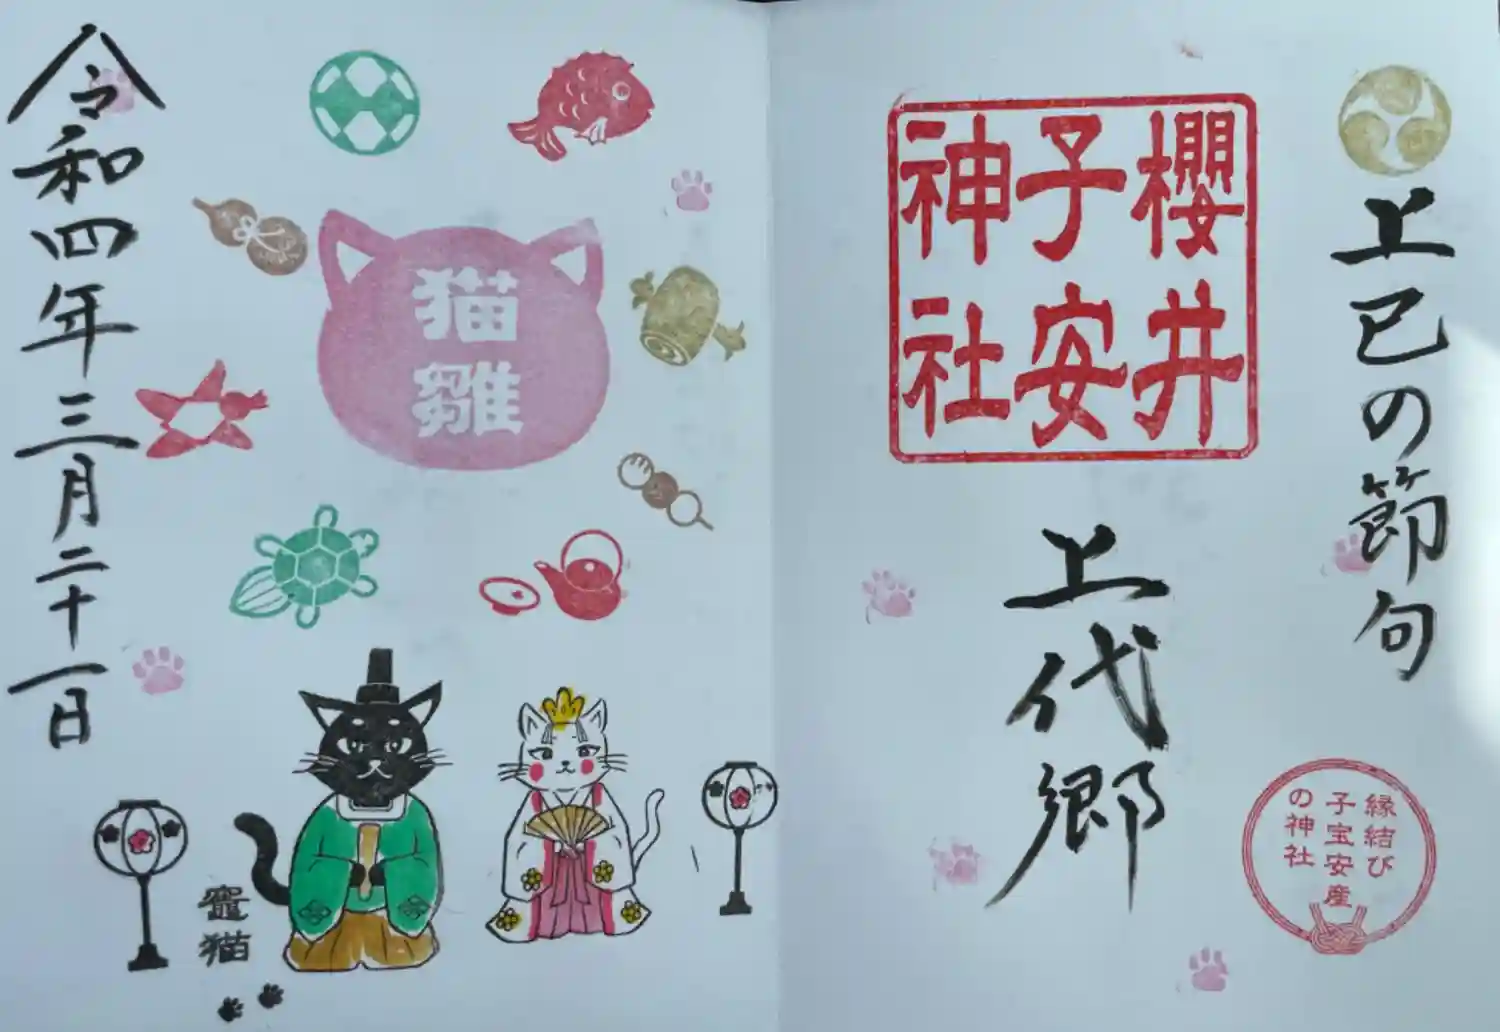 上巳の節句
櫻井
子安
神社
上代郷
縁結び
子宝安産
の神社
猫
雛
竈猫
令和四年三月二十一日